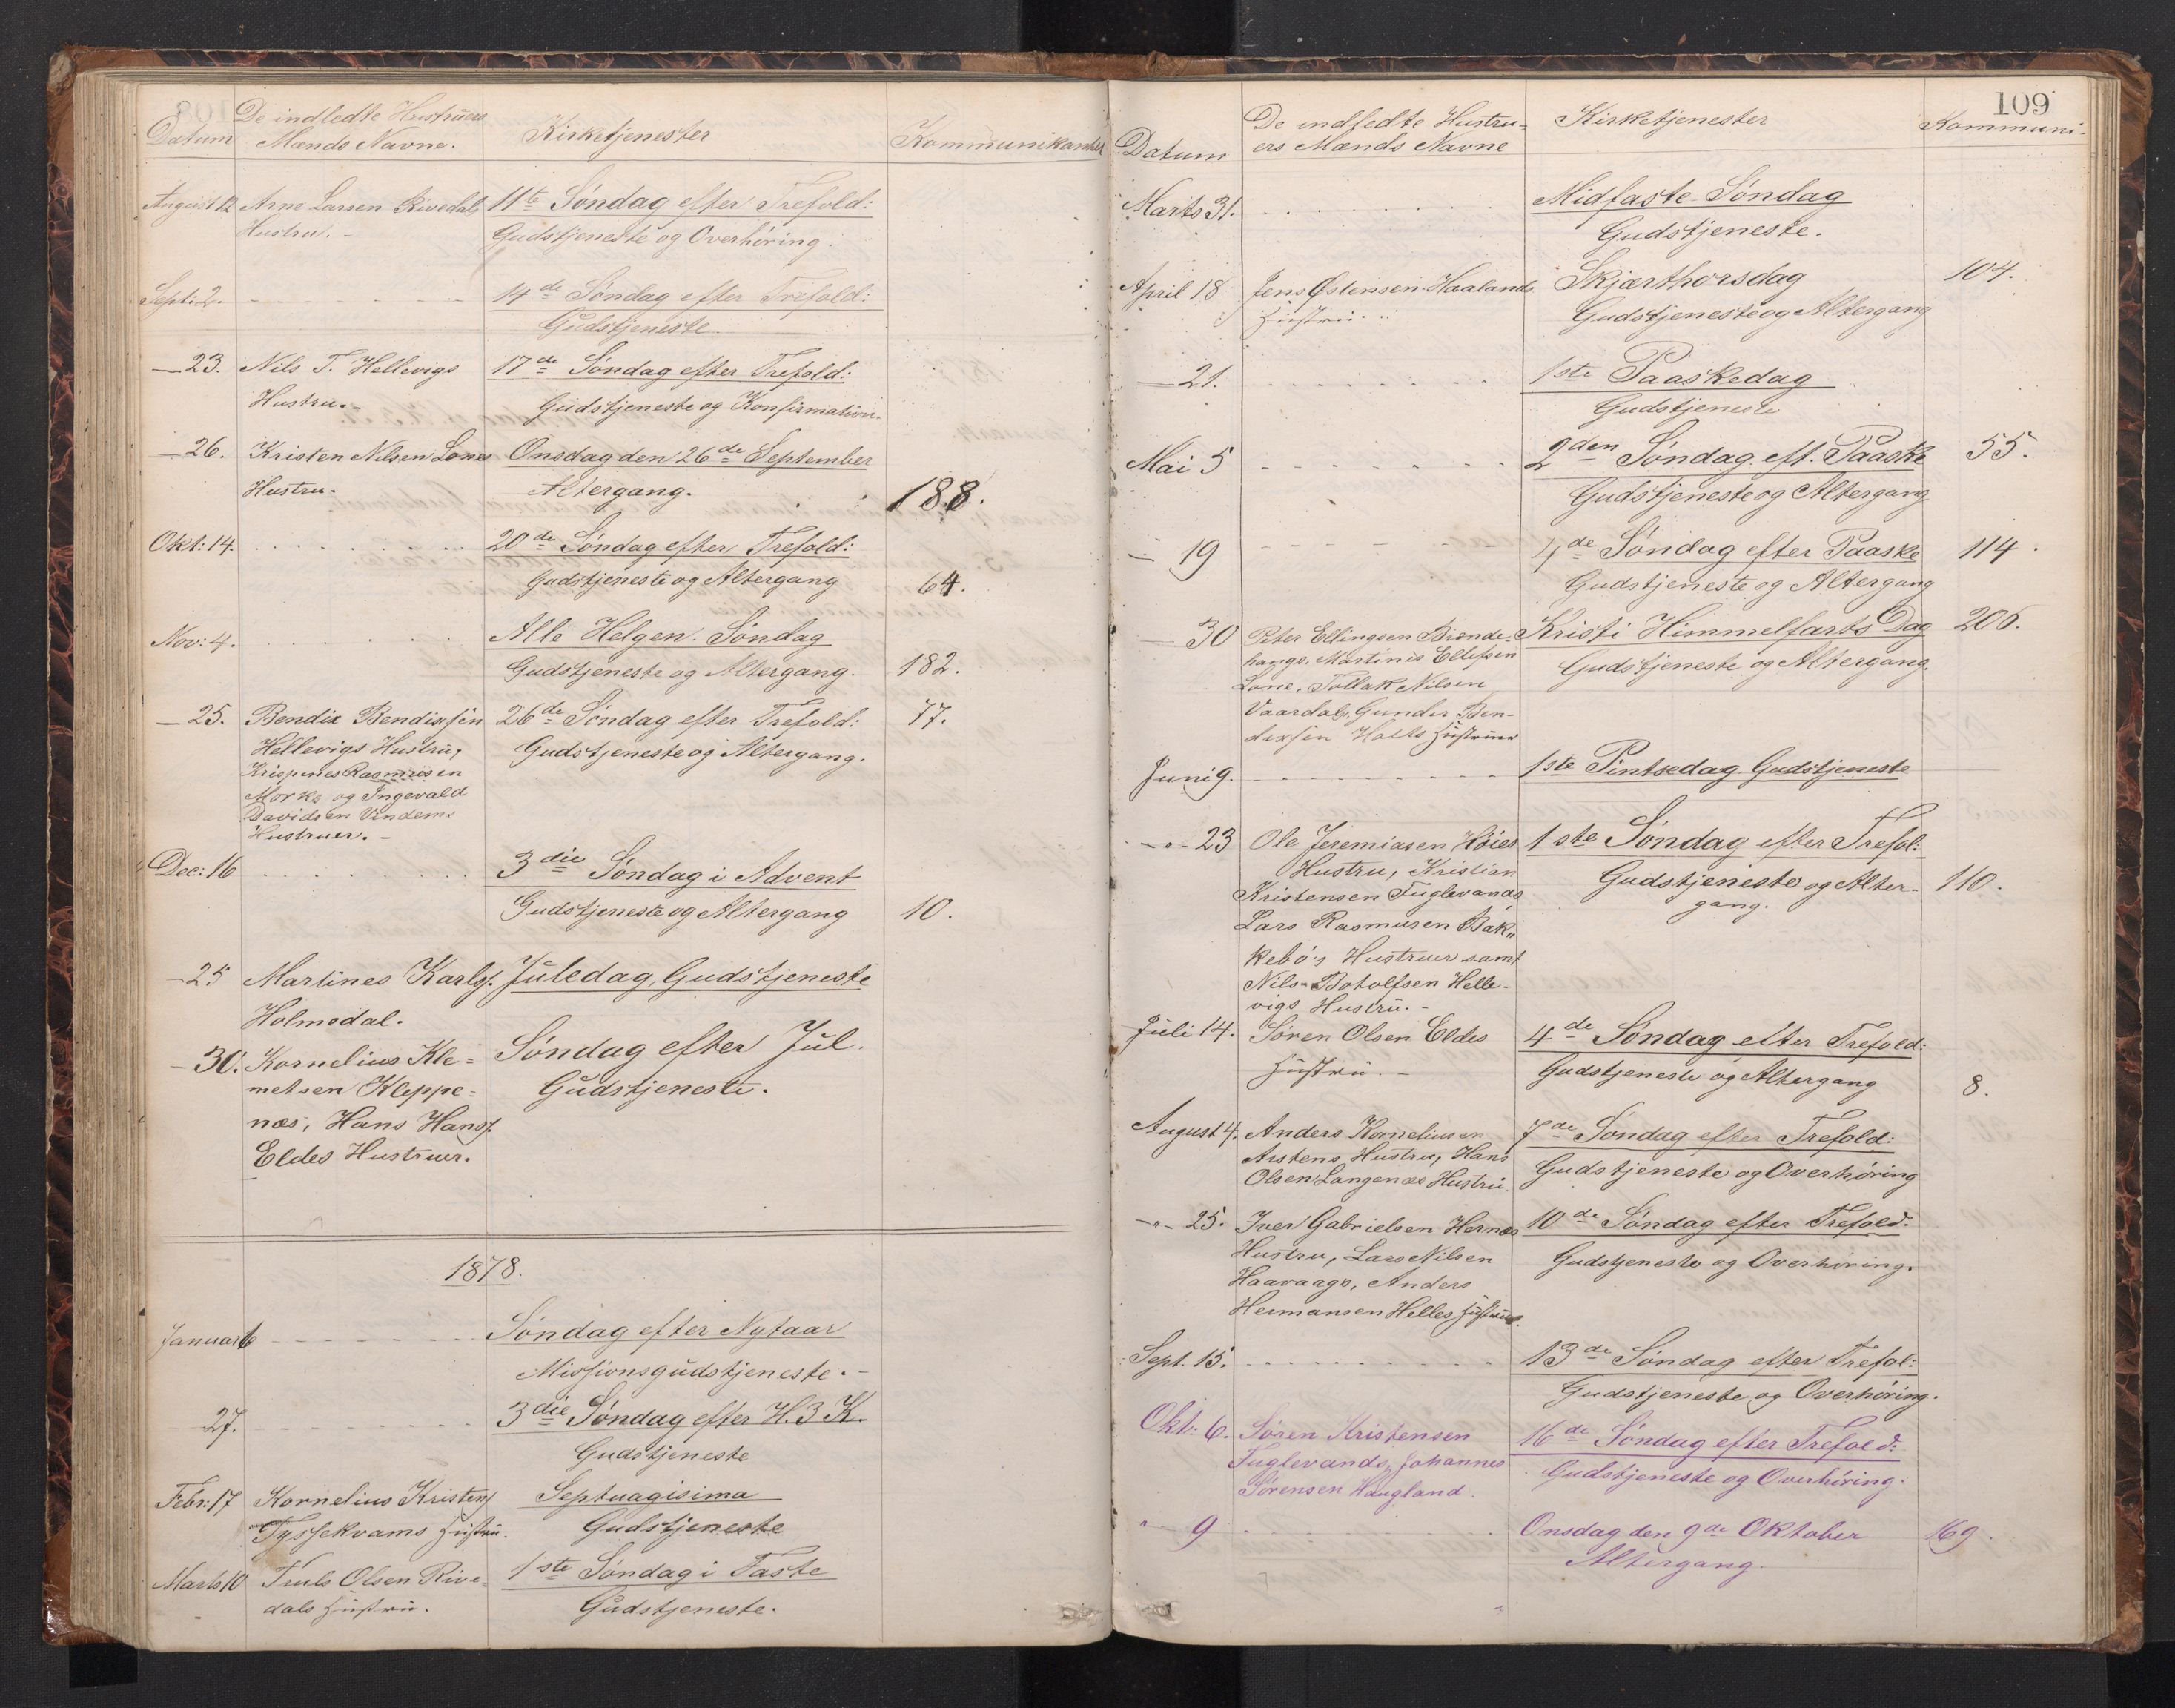 De indledte Hustruers
Datum Mænds Navne. Kirketjenester Kommunikanter
August 12 Arne Larsen Rivedals 11te Søndag efter Trefold:
Hustru. - Gudstjeneste og Overhöring.
Sept: 2. 14de Søndag efter Trefold:
Gudstjeneste
— 23. Nils T. Hellevigs 17de Søndag efter Trefold:
Hustru. - Gudstjeneste og Konfirmation.
— 26. Kristen Nilsen Lones Onsdag den 26de September
Hustru. Altergang. 188.
Okt: 14. 20de Søndag efter Trefold:
Gudstjeneste og Altergang 64.
Nov: 4. Alle Helgen Søndag
Gudstjeneste og Altergang. 182.
— 25. Bendix Bendixsen 26de Søndag efter Trefold: 77.
Hellevigs Hustru, Gudstjeneste og Altergang.
Krispines Rasmusen
Morks og Ingevald
Davidsen Vindems
Hustruer. -
Dec: 16 3die Søndag i Advent
Gudstjeneste og Altergang 10.
— 25 Martines Karls. Juledag, Gudstjeneste
Holmedal.
— 30. Kornelius Kle= Søndag efter Jul.
metsen Kleppe= Gudstjeneste.
næs, Hans Hans.
Eldes Hustruer.
1878.
Januar 6 Søndag efter Nytaar
Missionsgudstjeneste. -
27. 3die Søndag efter H. 3 K.
Gudstjeneste
Febr: 17 Kornelius Kristens Septuagisima
Tyssekvams Hustru. Gudstjeneste
Marts 10 Truls Olsen Rive= 1ste Søndag i Faste
dals Hustru. Gudstjeneste.
109
De indledte Hustru= Kirketjenester Kommuni-
Datum ers Mænds Navne
Marts 31. Midfaste Søndag
Gudstjeneste.
April 18 Jens Østensen Haalands Skjærthorsdag 104.
Hustru. Gudstjeneste og Altergang
— 21. 1ste Paaskedag
Gudstjeneste
Mai 5 2den Søndag eft. Paaske 55.
Gudstjeneste og Altergang
— 19 4de Søndag efter Paaske 114.
Gudstjeneste og Altergang
— 30 Peter Ellingsen Brende= Kristi Himmelfarts Dag 206.
haugs, Martinis Ellefsen Gudstjeneste og Altergang.
Lone, Tollak Nilsen
Vaardals, Gunder Ben-
dixsen Holts Hustruer
Juni 9. 1ste Pintsedag Gudstjeneste
-„- 23 Ole Jeremiasen Höies 1ste Søndag efter Trefol:
Hustru, Kristian Gudstjeneste og Alter- 110.
Kristensen Fuglevands gang.
Lars Rasmusen Bak„
kebö's Hustruer samt
Nils Botolfsen Helle-
vigs Hustru. -
Juli 14. Søren Olsen Eldes 4de Søndag efter Trefold:
Hustru. - Gudstjeneste og Altergang 8.
August 4. Anders Korneliusen 7de Søndag efter Trefold:
Arstens Hustru, Hans Gudstjeneste og Overhöring
Olsen Langenæs Hustru.
-„- 25. Iver Gabrielsen Hernæs 10de Søndag efter Trefold:
Hustru, Lars Nilsen Gudstjeneste og Overhöring.
Haavaags, Anders
Hermansen Helles Hustruer.
Sept. 15. 13de Søndag efter Trefol:
Gudstjeneste og Overhöring.
Okt: 6. Søren Kristensen 16de Søndag efter Trefold:
Fuglevands, Johannes Gudstjeneste og Overhöring.
Sørensen Haugland.
„ 9 Onsdag den 9de Oktober 169.
Altergang.